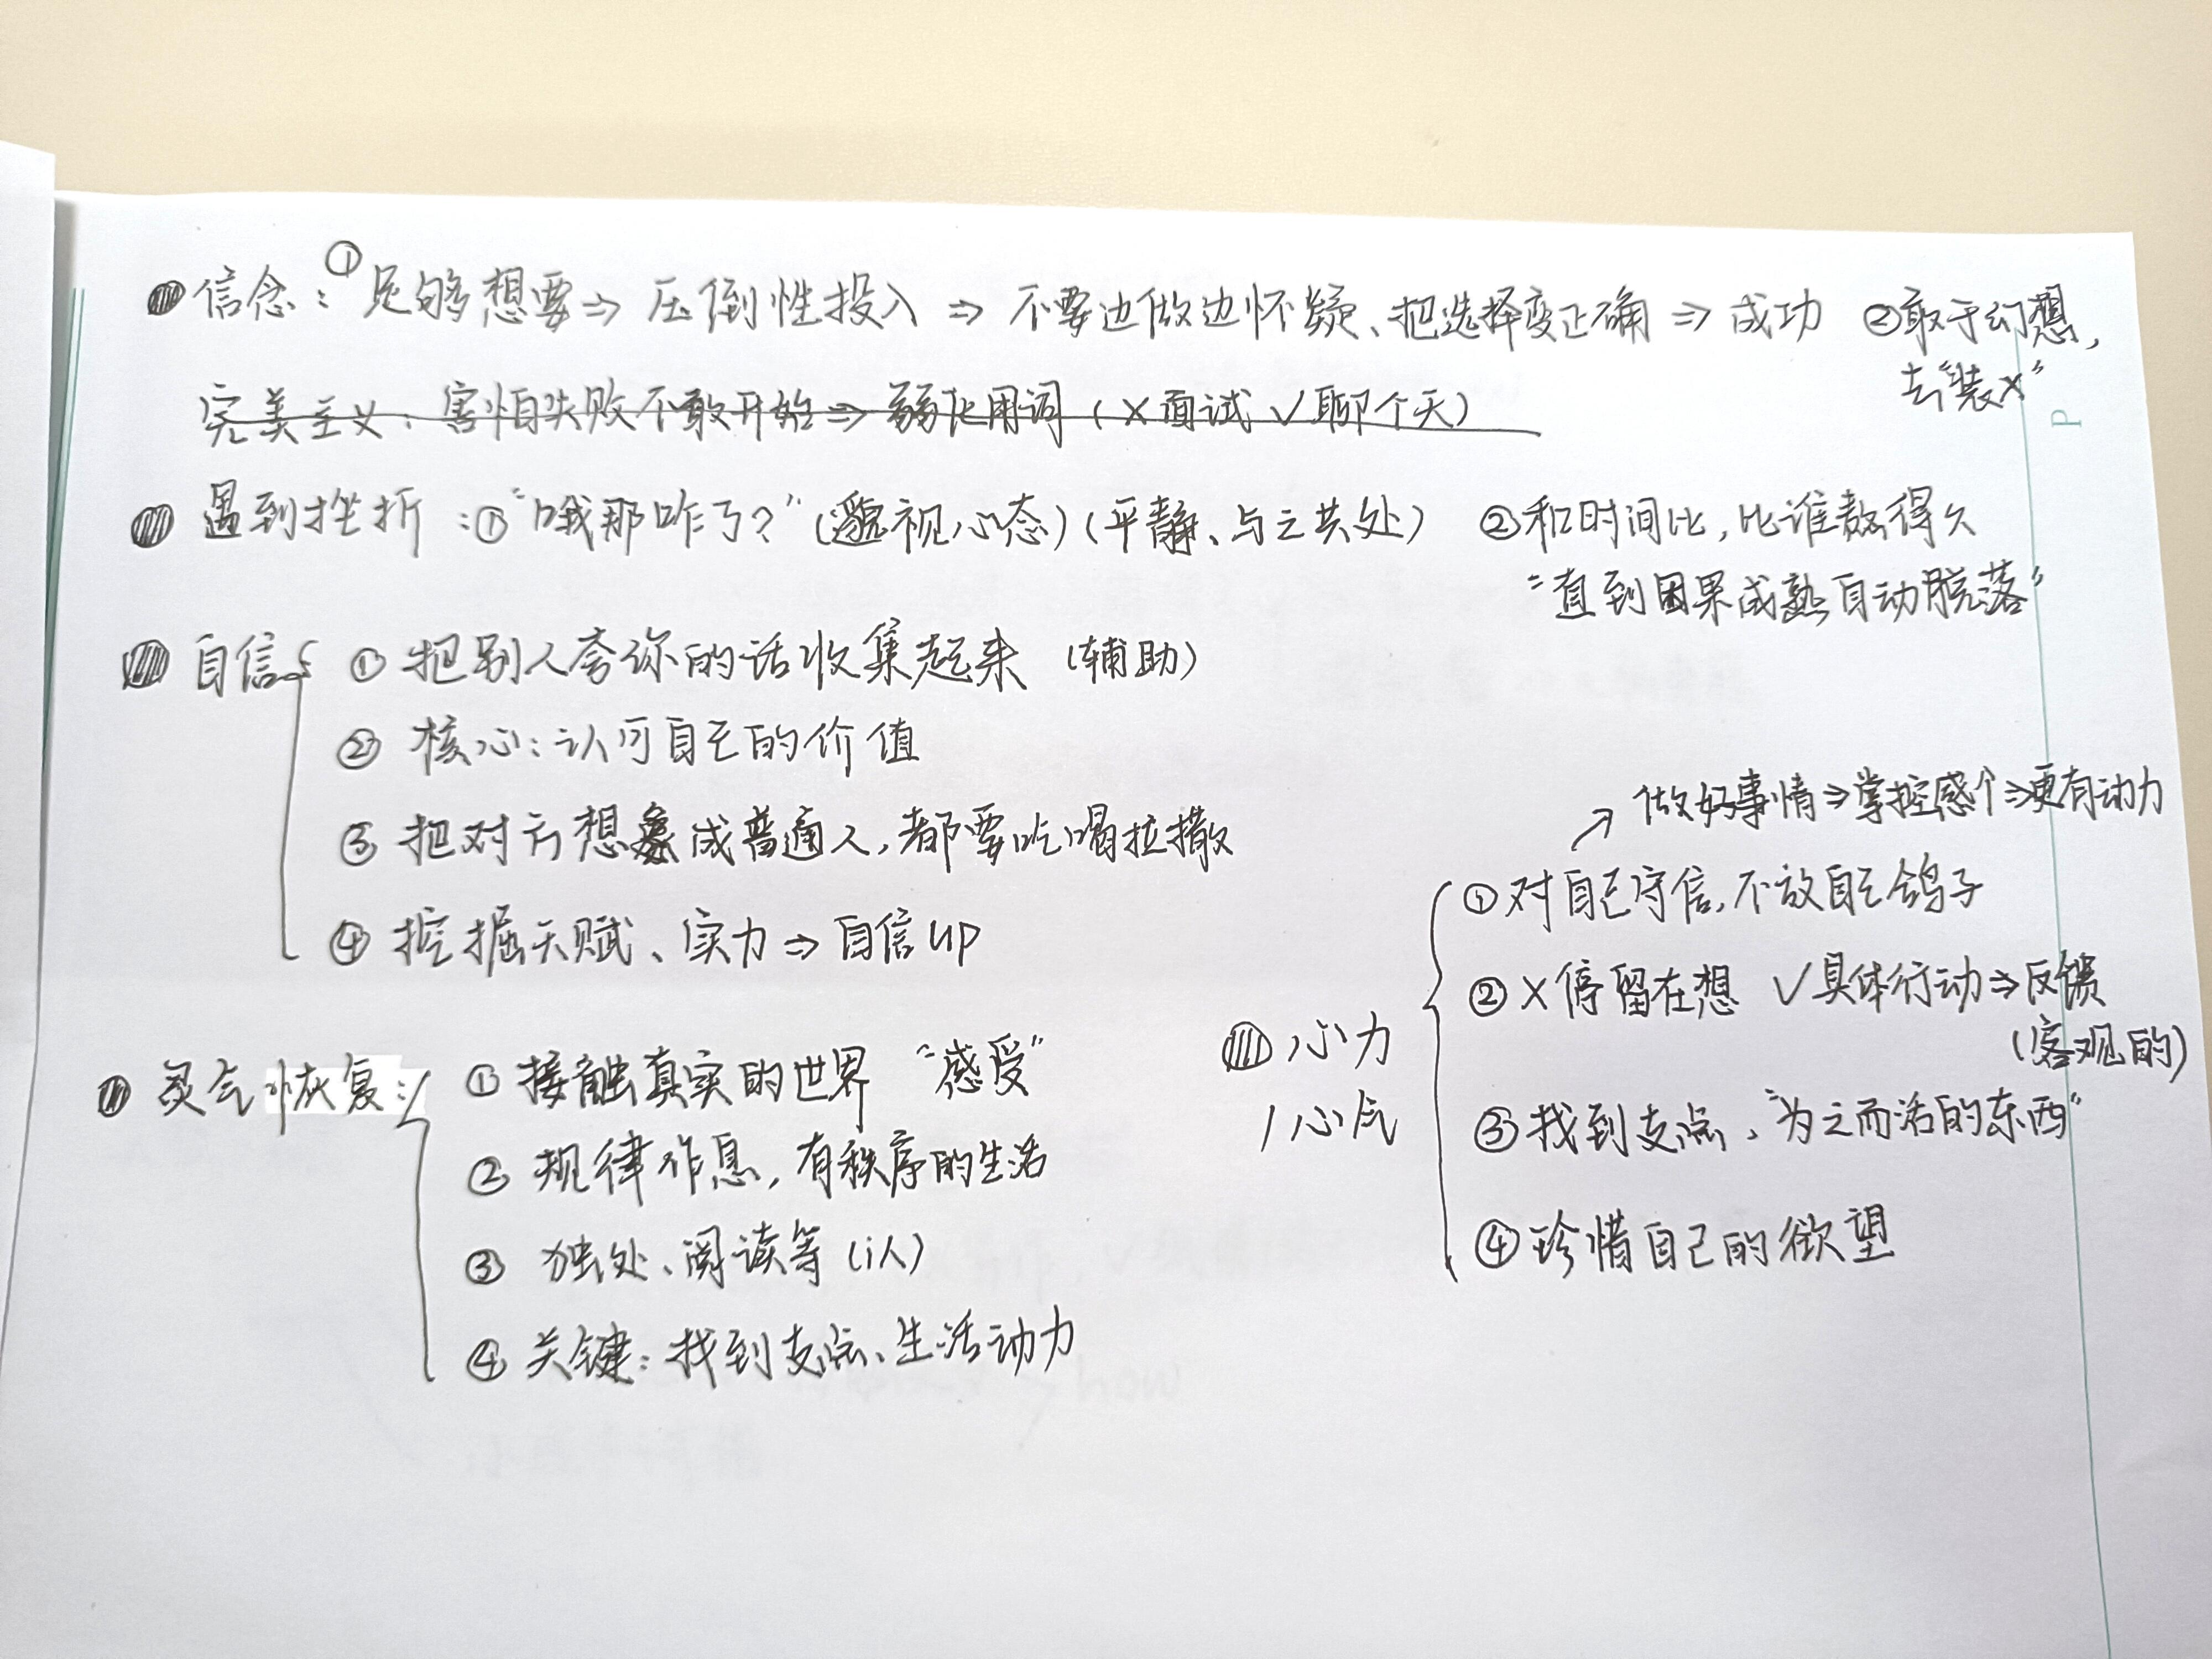 信念：①足够想要⇒压倒性投入⇒不要边做边怀疑、把选择变正确⇒成功 ②敢于幻想，
去“装X”
完美主义：害怕失败不敢开始⇒弱化用词（×面试 ✓聊个天）
P
遇到挫折：①“哦那咋了？”（藐视心态）（平静、与之共处） ②和时间比，比谁熬得久
“直到因果成熟自动脱落”
自信 ①把别人夸你的话收集起来（辅助）
②核心：认可自己的价值
③把对方想象成普通人，都要吃喝拉撒
④挖掘天赋、实力⇒自信up
灵气恢复： ①接触真实的世界 “感受”
②规律作息，有秩序的生活
③独处、阅读等（i人）
④关键：找到支点、生活动力
↗做好事情⇒掌控感↑⇒更有动力
心力
/心气
①对自己守信，不放自己鸽子
②×停留在想 ✓具体行动⇒反馈
（客观的）
③找到支点、“为之而活的东西”
④珍惜自己的欲望